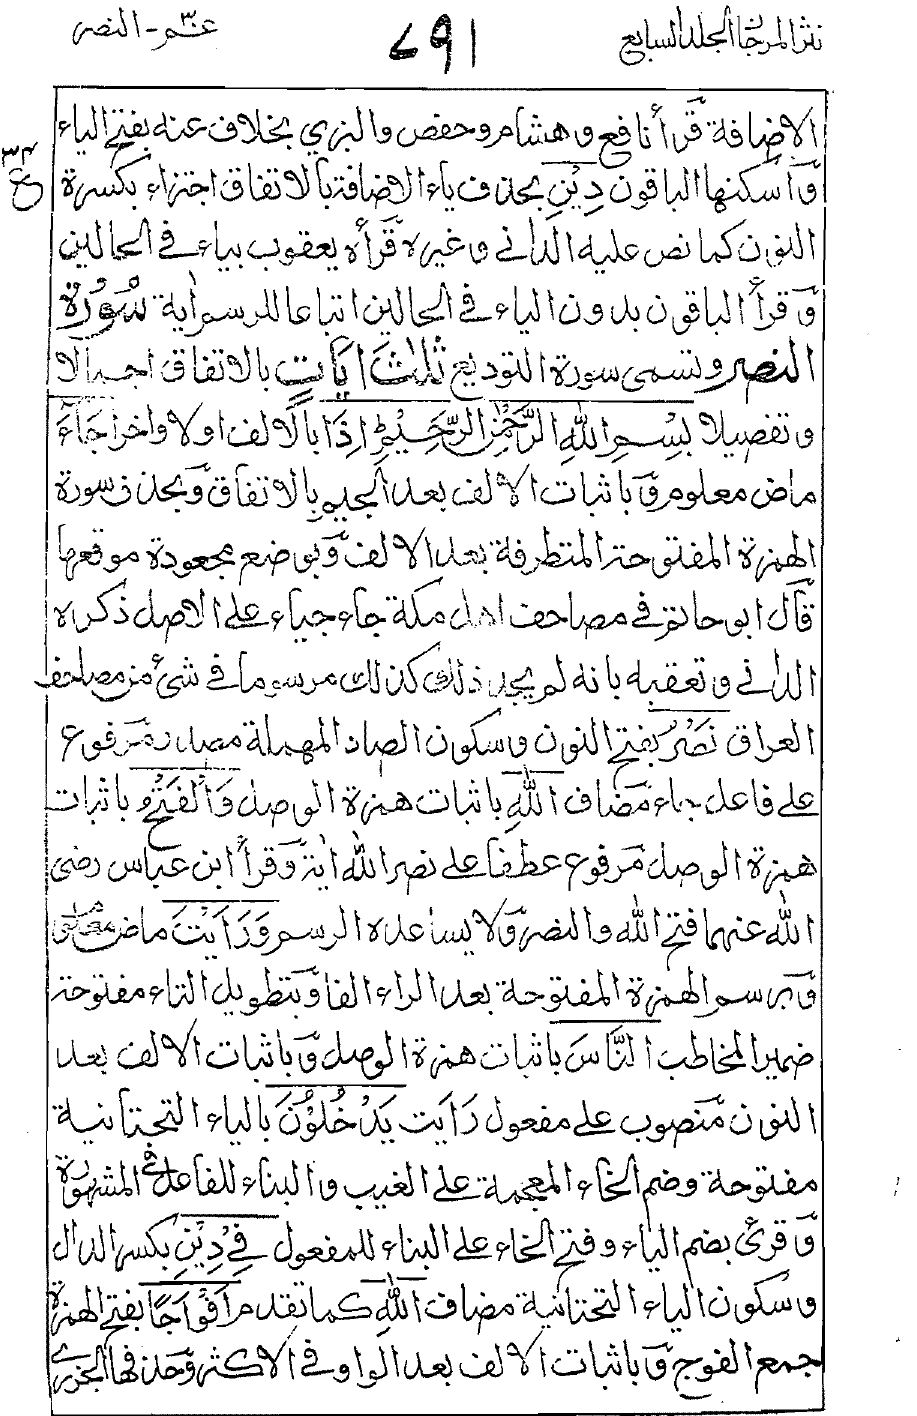 نثر المرجان المجلد السابع
٧٩١
عم ٣٠ - النصر
الاضافة قرأ نافع وهشام وحفص والبزي بخلاف عنه بفتح الياء
وأسكنها الباقون دِيْنِ بحذف ياء الاضافة بالاتفاق اجتزاء بكسرة
النون كما نص عليه الداني وغيره قرأه يعقوب بياء في الحالين
وقرأ الباقون بدون الياء في الحالين اتباعا للرسم اٰية سُوْرَةُ
النصر وتسمى سورة التوديع ثلٰث اٰيات بالاتفاق اجمالا
وتفصيلا بِسْمِ اللهِ الرَّحْمٰنِ الرَّحِيْمِ إِذَا بالالف اولا واخرا جَاءَ
ماض معلوم وباثبات الالف بعد الجيم بالاتفاق وبحذف سورة
الهمزة المفتوحة المتطرفة بعد الالف وبوضع مجعودة موقعها
قال ابو حاتم في مصاحف اهل مكة جاء جياء على الاصل ذكره
الداني وتعقبه بانه لم يجد ذلك كذلك مرسوما في شئ من مصاحف
العراق نَصْرُ بفتح النون وسكون الصاد المهملة مصدر مرفوع
على فاعل جاء مضاف اللهِ باثبات همزة الوصل وَالْفَتْحُ باثبات
همزة الوصل مرفوع عطفا على نصر الله اٰية وقرأ ابن عباس رضي
الله عنهما فتح الله والنصر ولا يساعده الرسم وَرَاَيْتَ ماض معلوم
وبرسم الهمزة المفتوحة بعد الراء الفا وبتطويل التاء مفتوحة
ضمير المخاطب النَّاسَ باثبات همزة الوصل وباثبات الالف بعد
النون منصوب على مفعول رَاَيت يَدْخُلُوْنَ بالياء التحتانية
مفتوحة وضم الخاء المعجمة على الغيب والبناء للفاعل في المشهورة
وقرئ بضم الياء وفتح الخاء على البناء للمفعول فِيْ دِيْنِ بكسر الدال
وسكون الياء التحتانية مضاف اللهِ كما تقدم اَفْوَاجًا بفتح الهمزة
جمع الفوج وباثبات الالف بعد الواو في الاكثر وحذفها الجزري